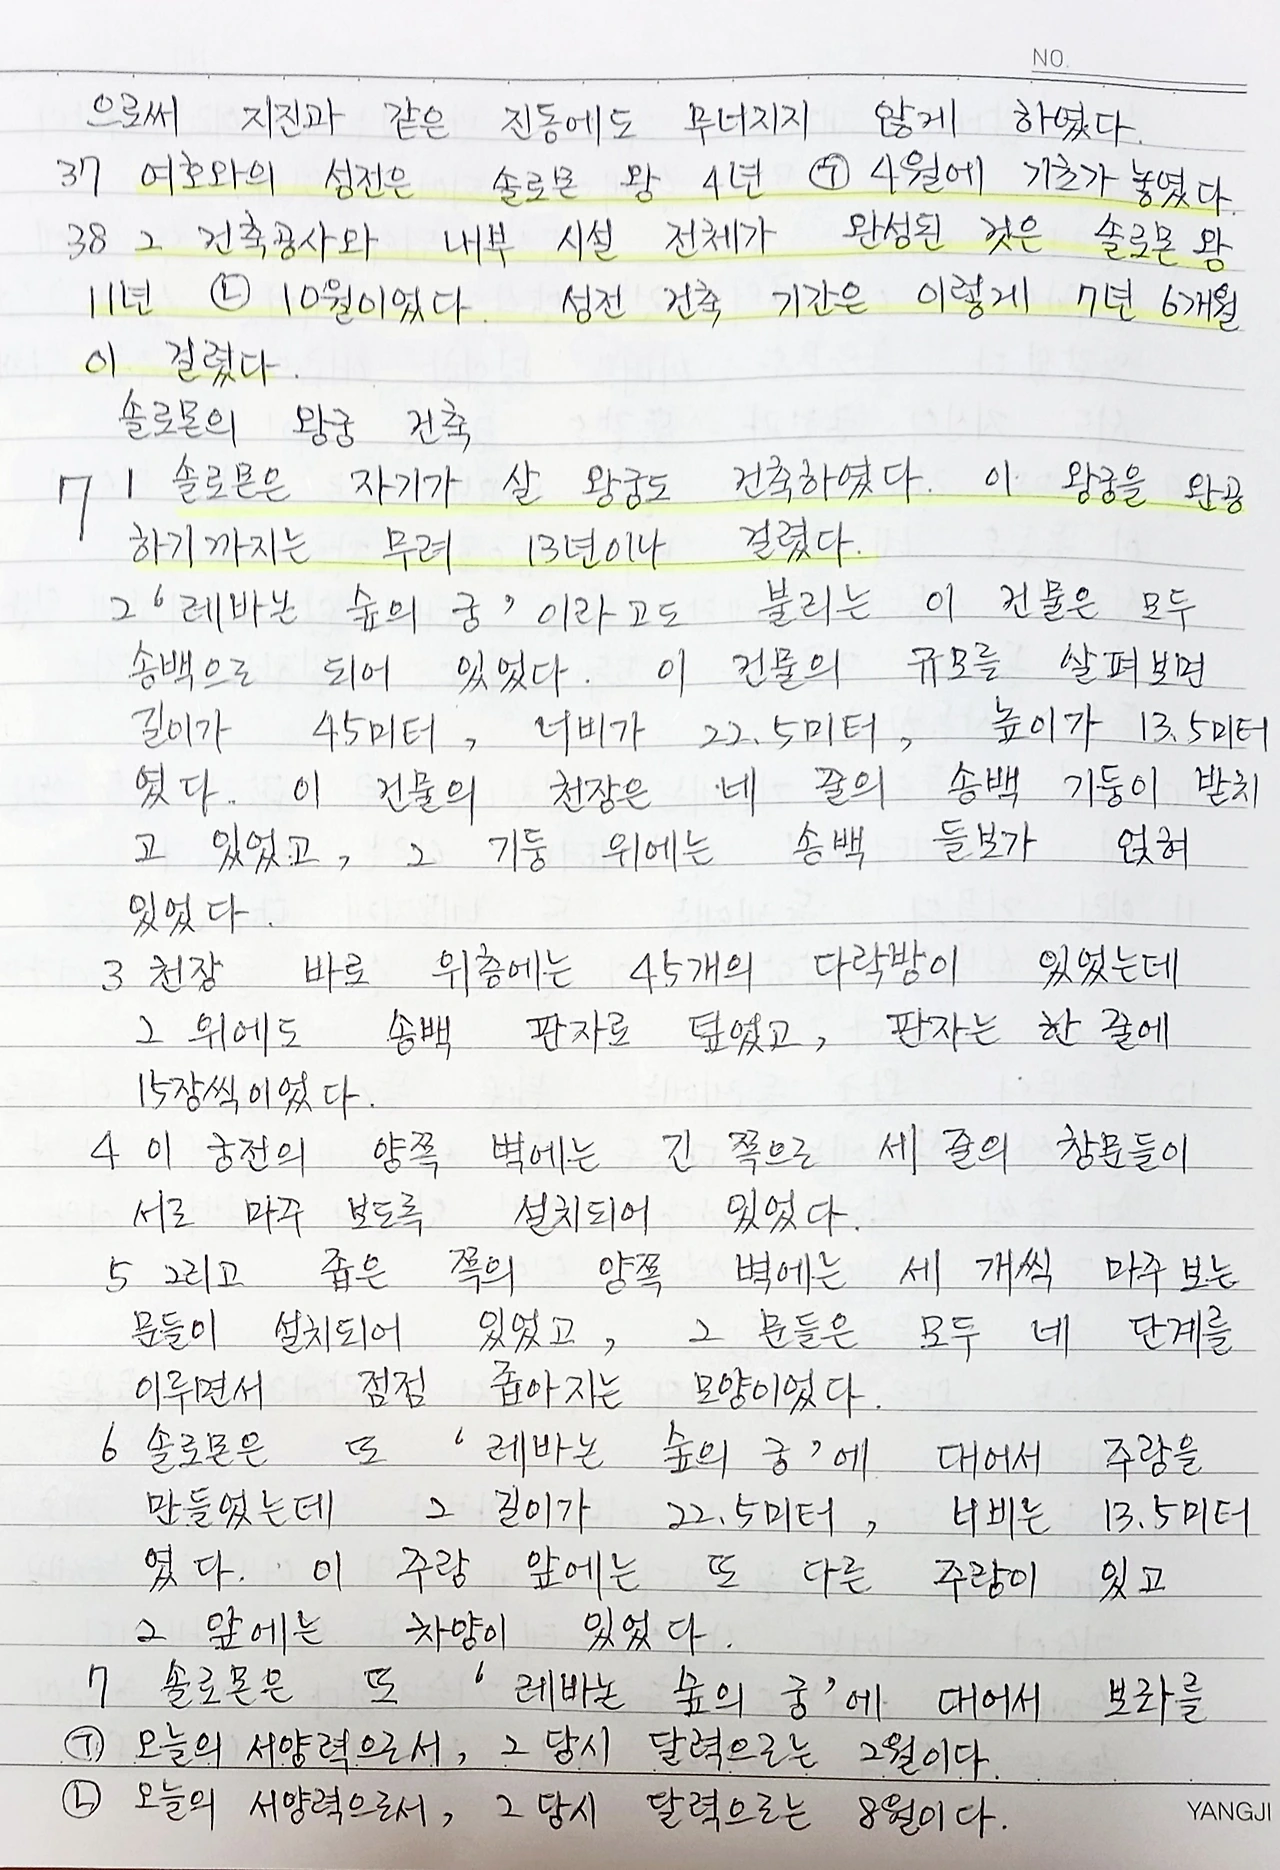 NO.
으로써 지진과 같은 진동에도 무너지지 않게 하였다.
37 여호와의 성전은 솔로몬 왕 4년 ㉠ 4월에 기초가 놓였다.
38 그 건축공사와 내부 시설 전체가 완성된 것은 솔로몬 왕
11년 ㉡ 10월이었다. 성전 건축 기간은 이렇게 7년 6개월
이 걸렸다.
솔로몬의 왕궁 건축
7 1 솔로몬은 자기가 살 왕궁도 건축하였다. 이 왕궁을 완공
하기까지는 무려 13년이나 걸렸다.
2 '레바논 숲의 궁' 이라고도 불리는 이 건물은 모두
송백으로 되어 있었다. 이 건물의 규모를 살펴보면
길이가 45미터, 너비가 22.5미터, 높이가 13.5미터
였다. 이 건물의 천장은 네 줄의 송백 기둥이 받치
고 있었고, 그 기둥 위에는 송백 들보가 얹혀
있었다.
3 천장 바로 위층에는 45개의 다락방이 있었는데
그 위에도 송백 판자로 덮었고, 판자는 한 줄에
15장씩이었다.
4 이 궁전의 양쪽 벽에는 긴 쪽으로 세 줄의 창문들이
서로 마주 보도록 설치되어 있었다.
5 그리고 좁은 쪽의 양쪽 벽에는 세 개씩 마주 보는
문들이 설치되어 있었고, 그 문들은 모두 네 단계를
이루면서 점점 좁아지는 모양이었다.
6 솔로몬은 또 '레바논 숲의 궁'에 대어서 주랑을
만들었는데 그 길이가 22.5미터, 너비는 13.5미터
였다. 이 주랑 앞에는 또 다른 주랑이 있고
그 앞에는 차양이 있었다.
7 솔로몬은 또 '레바논 숲의 궁'에 대어서 보좌를
㉠ 오늘의 서양력으로서, 그 당시 달력으로는 2월이다.
㉡ 오늘의 서양력으로서, 그 당시 달력으로는 8월이다.
YANGJI